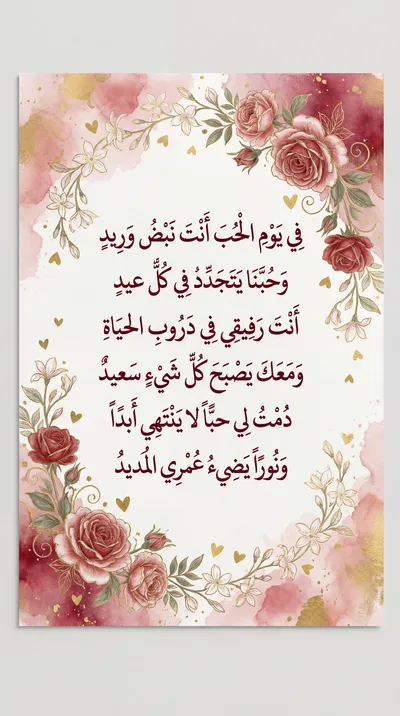 فِي يَوْمِ الْحُبَ أَنْتَ نَبْضُ وَرِيدٍ
وَحُبُّنَا يَتَجَدِّدُ فِي كُلُّ عيدٍ
أَنْتَ رَفِيقِي فِي دَرُوبِ الحَيَاةِ
وَمَعَكَ يَصْبَحَ كُلَّ شَيْءٍ سَعيدٌ
دُمْتُ لِي حبَّاً لا يَنْتَهِي أَبَدًاً
وَنُورًاً يَضِيءُ عُمْرِي المُديدُ